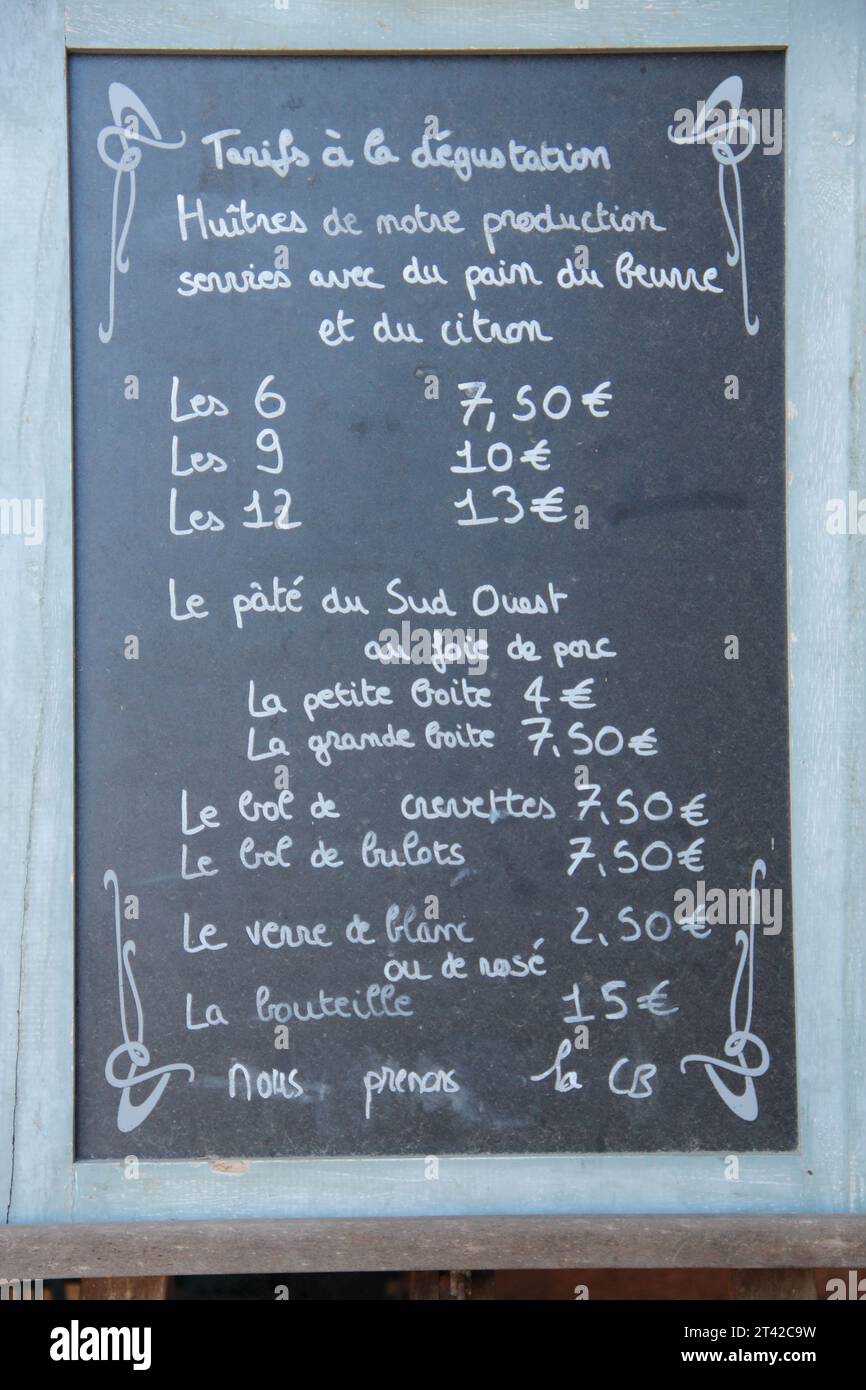 Tarifs à la dégustation
Huîtres de notre production
servies avec du pain du beurre
et du citron
Les 6 7,50€
Les 9 10€
Les 12 13€
Le pâté du Sud Ouest
au foie de porc
La petite boite 4€
La grande boite 7.50€
Le bol de crevettes 7.50€
Le bol de bulots 7.50€
Le verre de blanc 2.50€
ou de rosé
La bouteille 15€
nous prenons la CB
alamy
Image ID: 2T42C9W
www.alamy.com